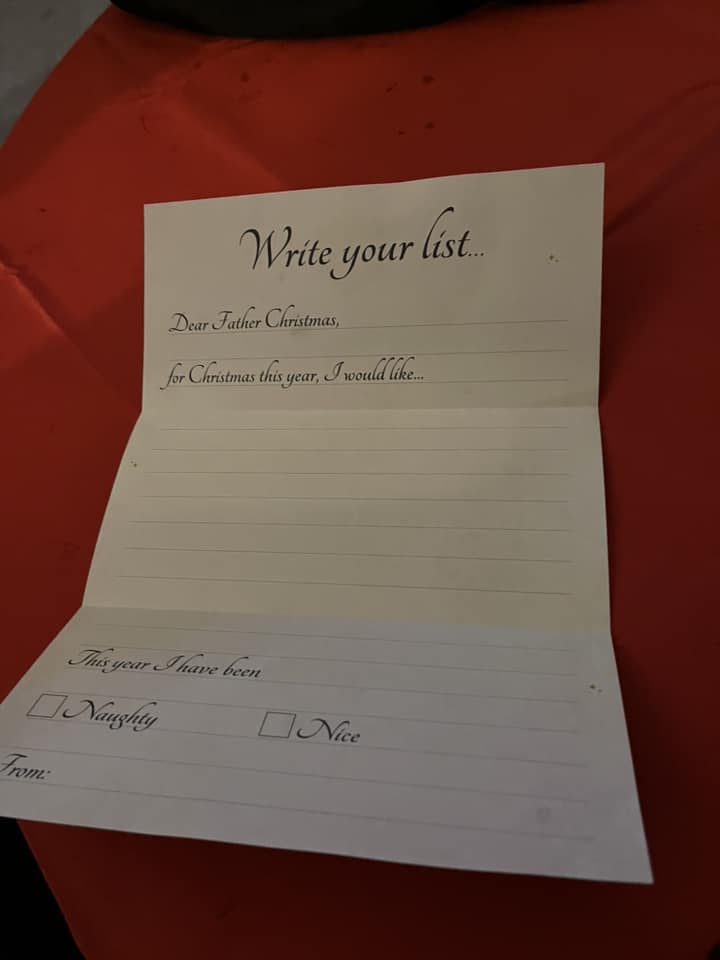 Write your list...
Dear Father Christmas,
for Christmas this year, I would like...
This year I have been
Naughty Nice
From: